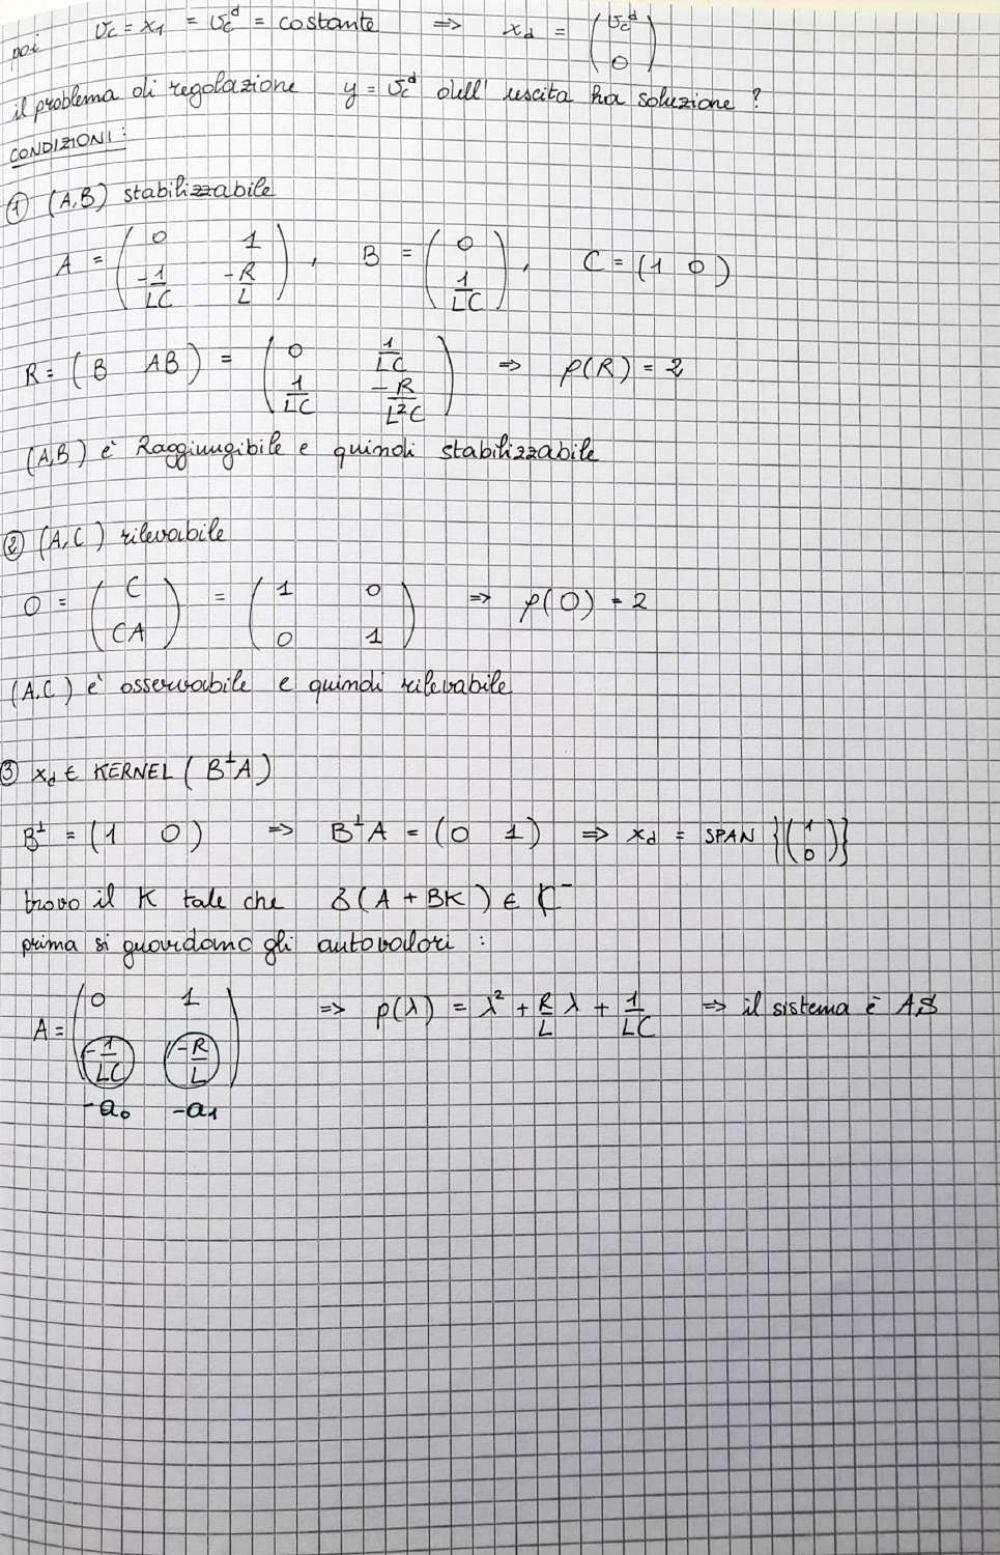 poi v_c = x_1 = v_c^d = costante ⇒ x_d = (v_c^d ; 0)
il problema di regolazione y = v_c^d dell' uscita ha soluzione ?
CONDIZIONI:
① (A,B) stabilizzabile
A = (0 1 ; -1/LC -R/L), B = (0 ; 1/LC), C = (1 0)
R = (B AB) = (0 1/LC ; 1/LC -R/L²C) ⇒ ρ(R) = 2
(A,B) è Raggiungibile e quindi stabilizzabile
② (A,C) rilevabile
O = (C ; CA) = (1 0 ; 0 1) ⇒ ρ(O) = 2
(A,C) è osservabile e quindi rilevabile
③ x_d ∈ KERNEL (B^⊥A)
B^⊥ = (1 0) ⇒ B^⊥A = (0 1) ⇒ x_d = SPAN {(1 ; 0)}
trovo il K tale che δ(A + BK) ∈ ℂ^-
prima si guardano gli autovalori :
A = (0 1 ; -1/LC -R/L) ⇒ p(λ) = λ² + R/L λ + 1/LC ⇒ il sistema è AS
-a_0 -a_1